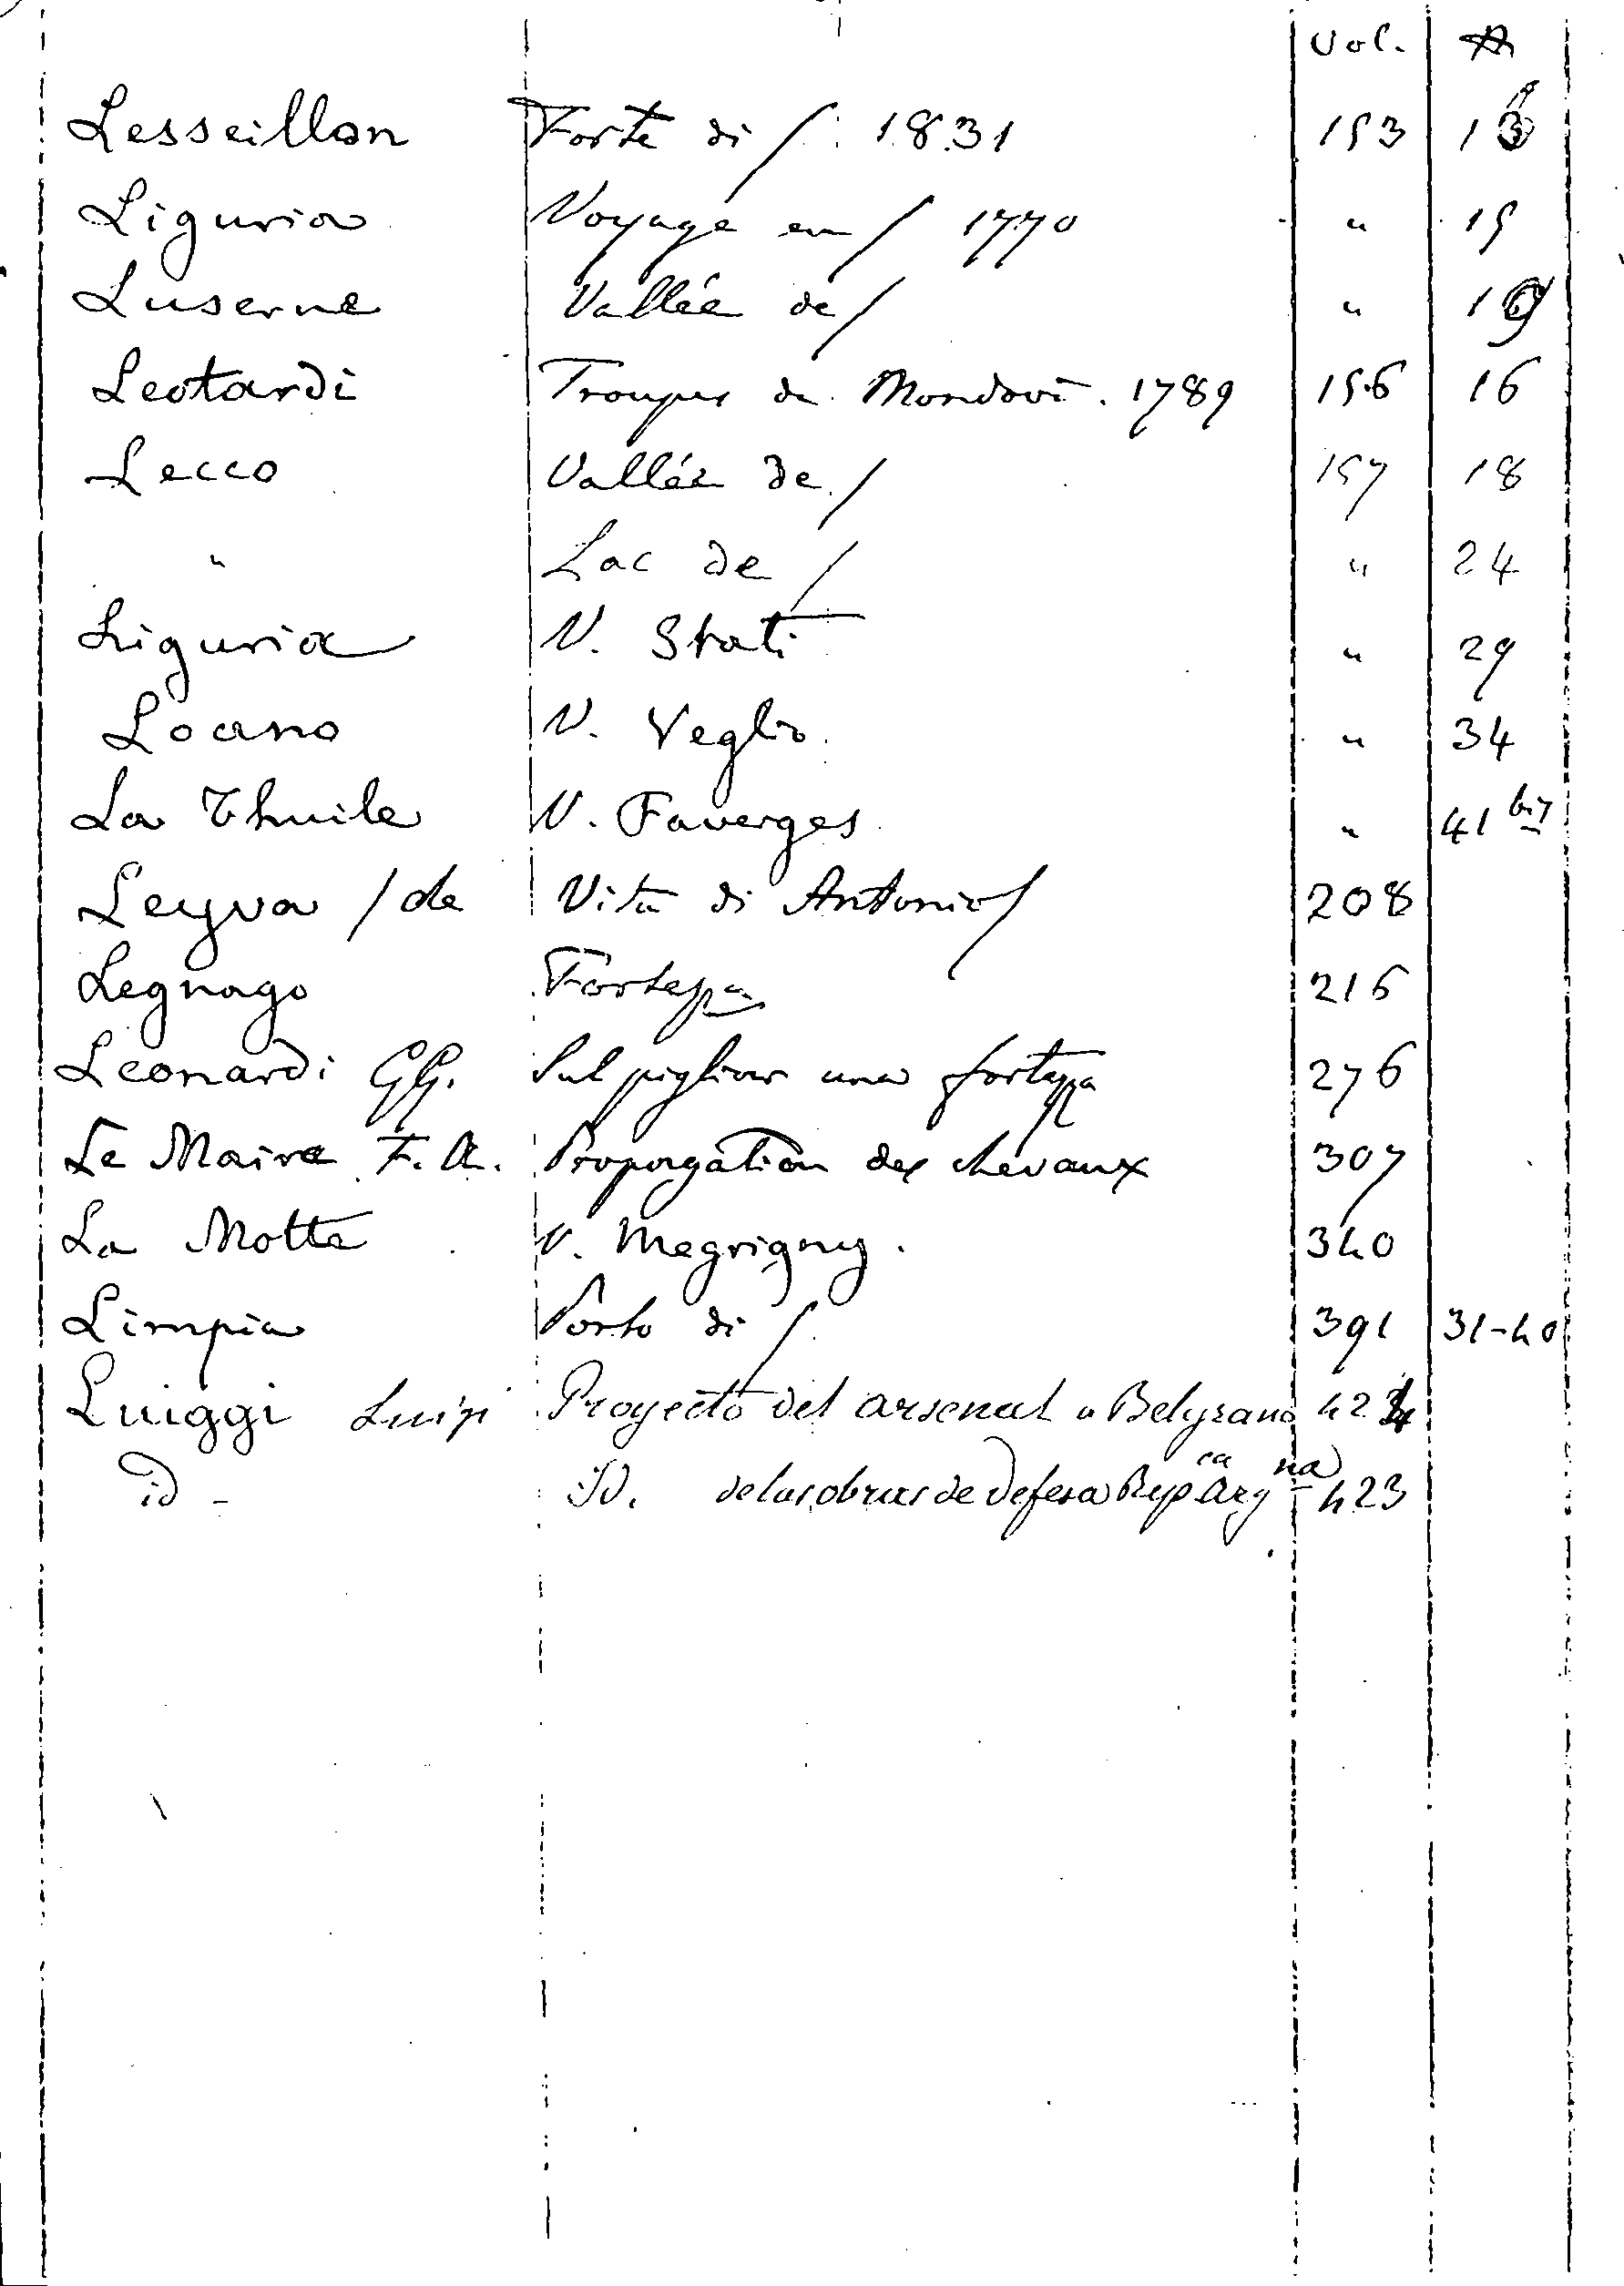 Vol.
Lesseillon Forte di /. 1831 153 13
Liguria Voyage en / 1770 " 15
Luserne Vallée de / " 19
Leotardi Troupes de Mondovi. 1789 156 16
Lecco Vallée de / 157 18
" Lac de / " 24
Liguria V. Stati " 29
Loano V. Veglio " 34
La Thuile V. Faverges " 41 bis
Leyva / de Vita di Antonio / 208
Legnago Fortezza 216
Leonardi GG. Sul pigliar una fortezza 276
Le Maire F. A. Propagation des chevaux 307
La Motte V. Megrigny. 340
Limpia Porto di / 391 31-40
Luiggi Luigi Proyecto del arsenal a Belgrano 424
id - ID. de las obras de defesa Rep ca Arg na 423